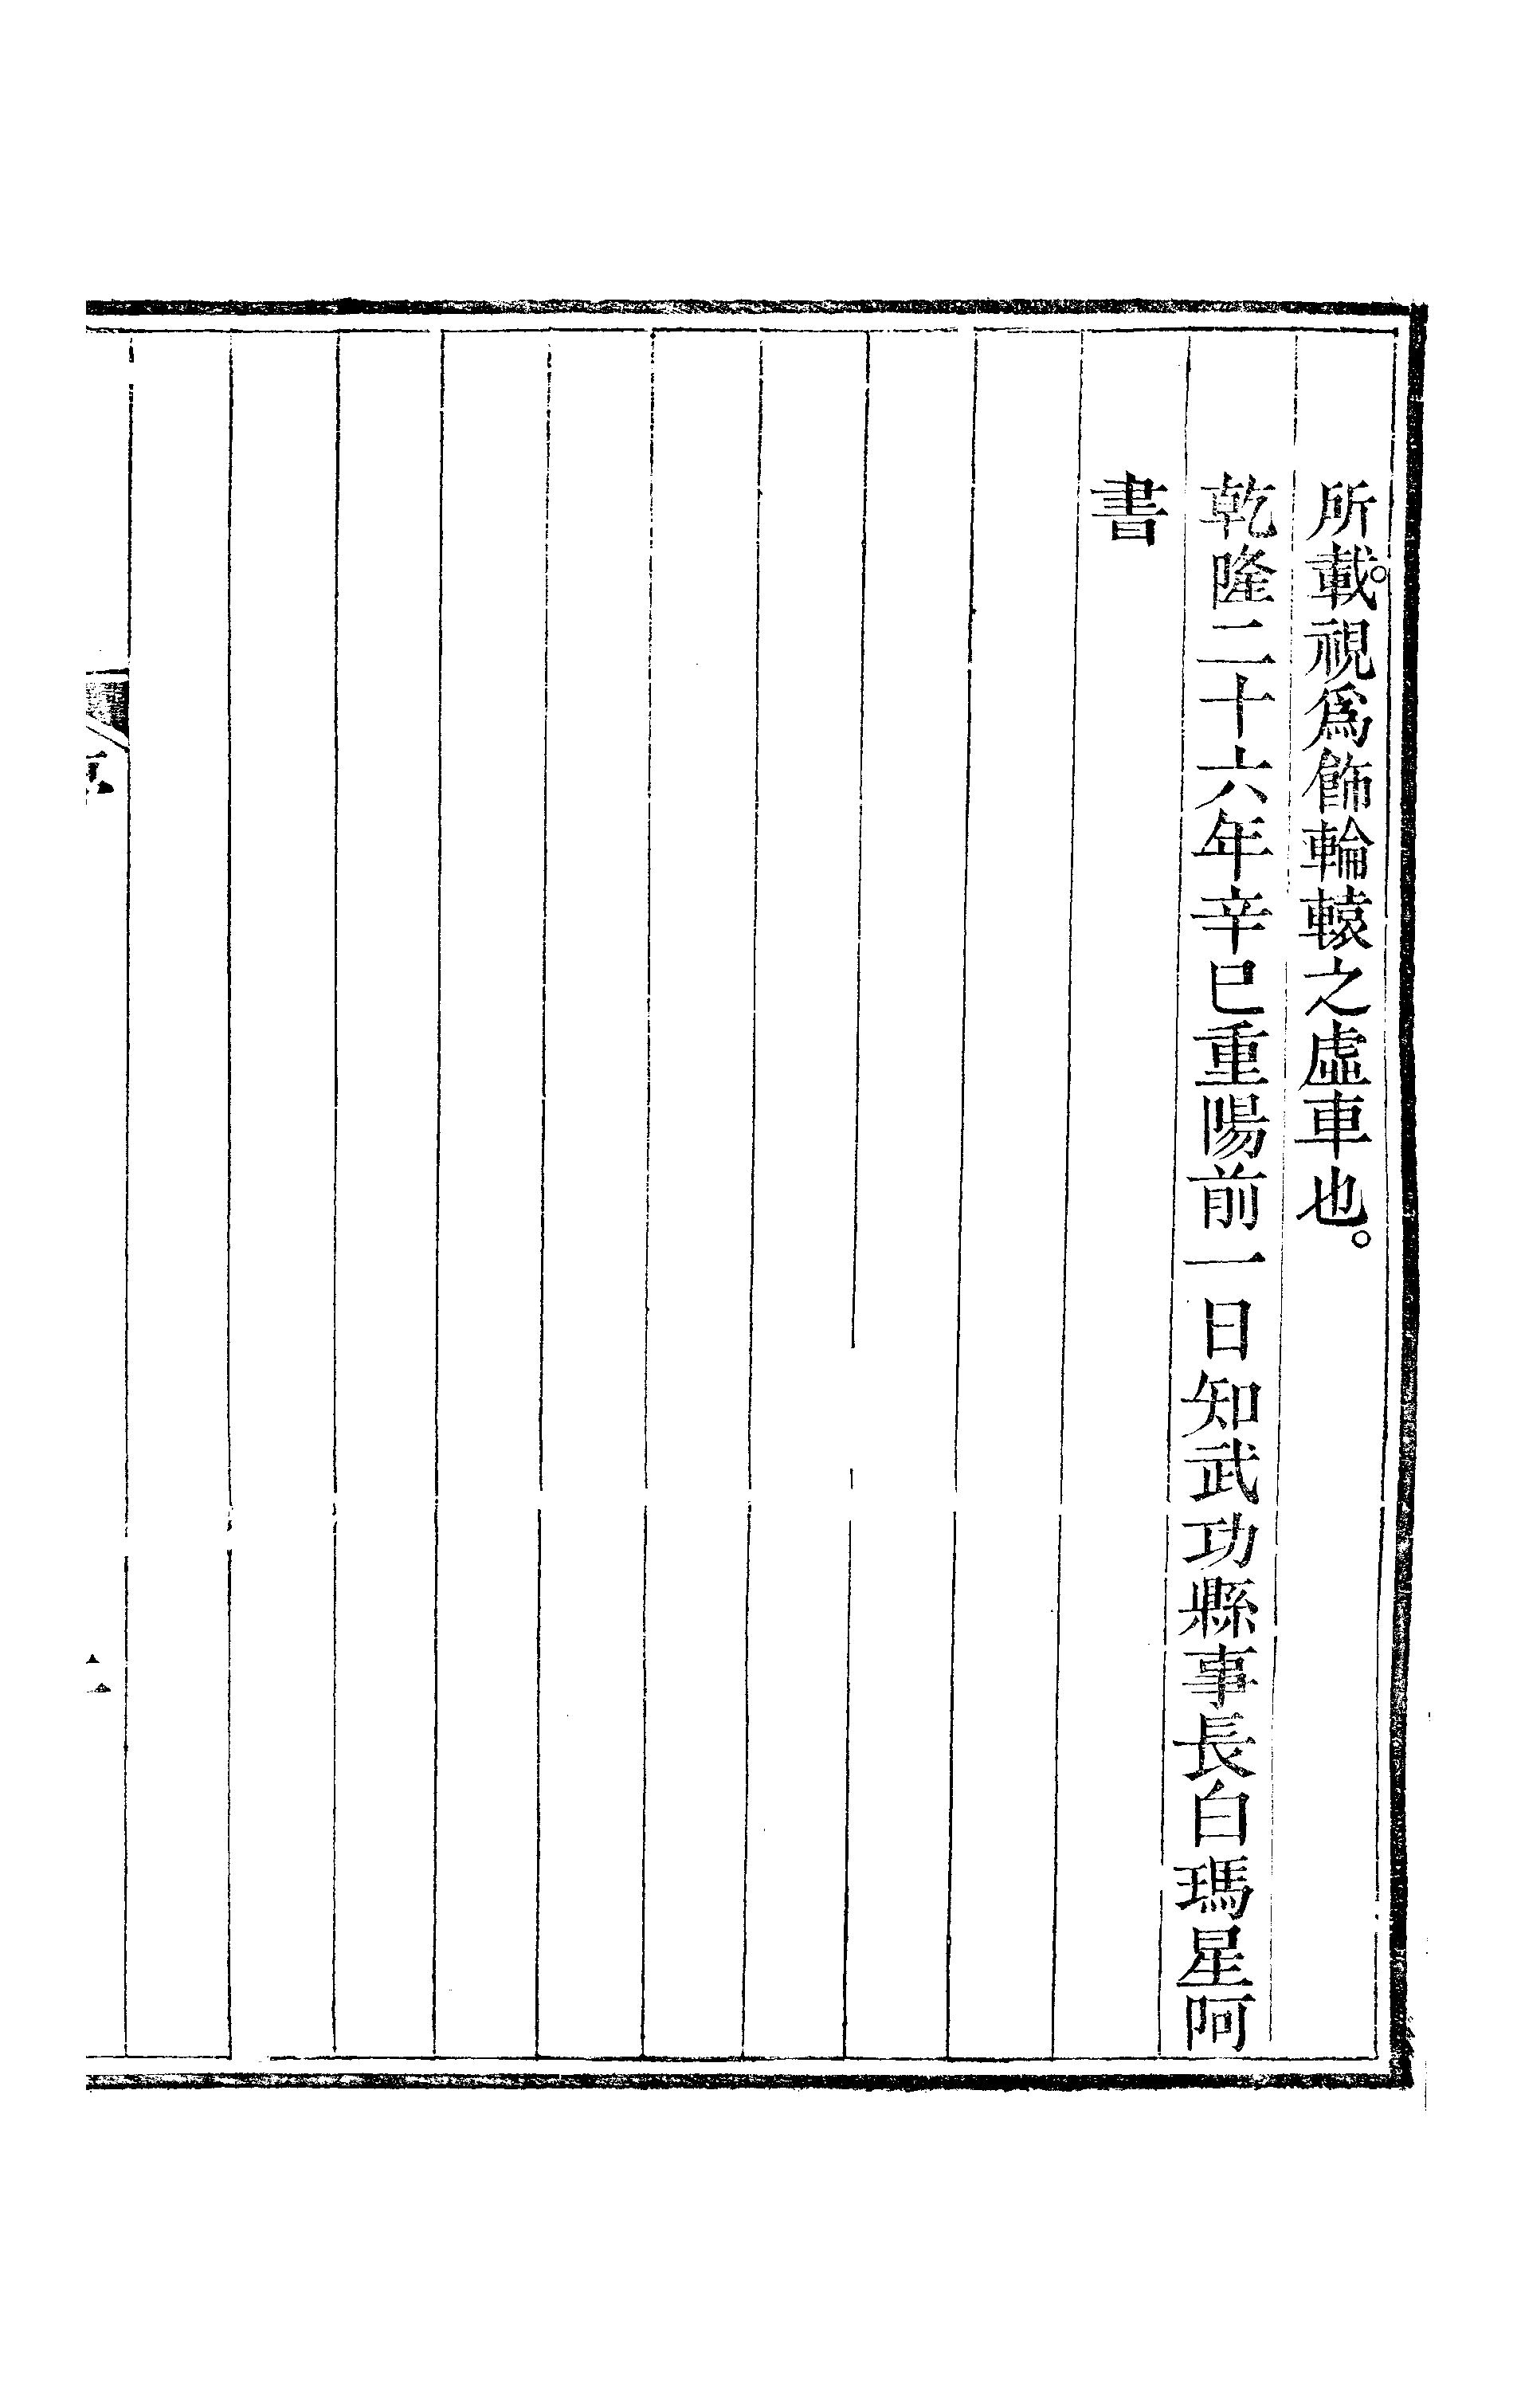 所載。視爲飾輪轅之虛車也。
乾隆二十六年辛巳重陽前一日知武功縣事長白瑪星阿
書